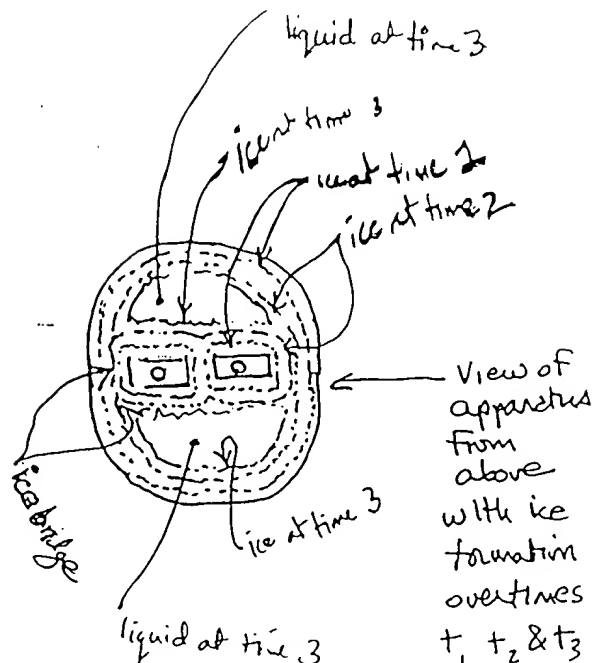 liquid at time 3
ice at time 3
ice at time 1
ice at time 2
View of
apparatus
from
above
with ice
formation
over times
t₁ t₂ & t₃
ice bridge
ice at time 3
liquid at time 3